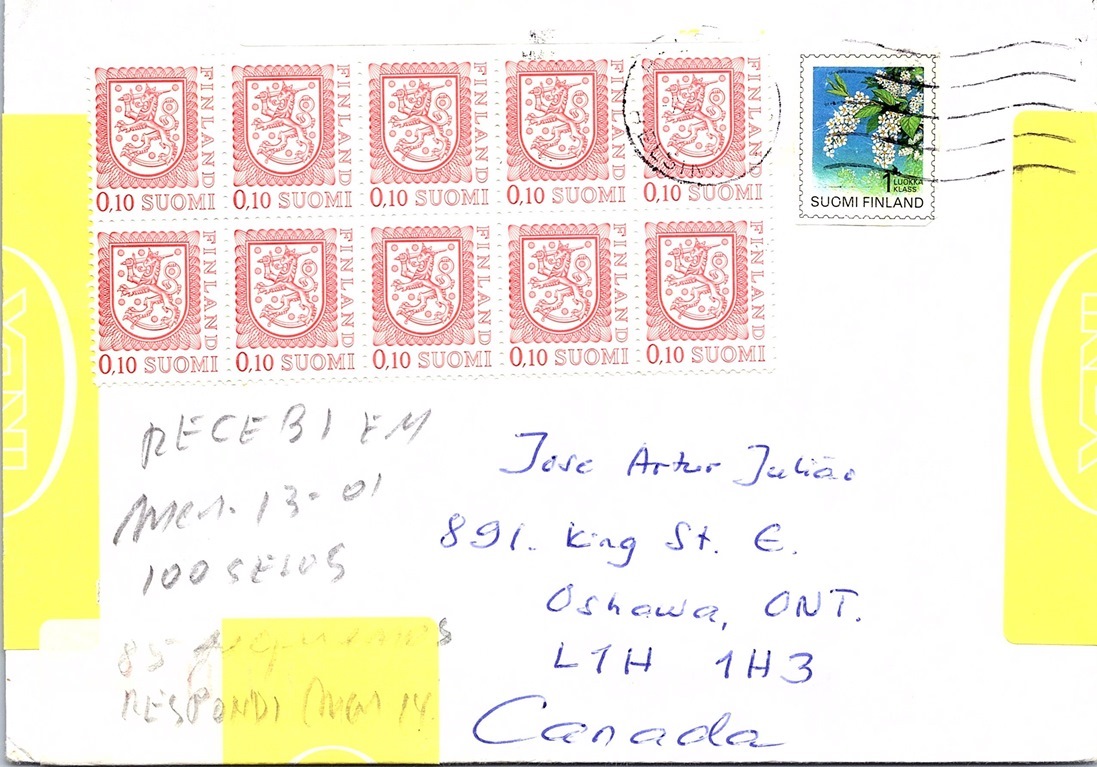 FINLAND FINLAND FINLAND FINLAND FINLAND
0,10 SUOMI 0,10 SUOMI 0,10 SUOMI 0,10 SUOMI 0,10 SUOMI
1 LUOKKA
KLASS
SUOMI FINLAND
FINLAND FINLAND FINLAND FINLAND FINLAND
0,10 SUOMI 0,10 SUOMI 0,10 SUOMI 0,10 SUOMI 0,10 SUOMI
RECEBI EM
13-01
100 SELOS
85
RESPONDI 14
Jose Artur Julião
891. King St. E.
Oshawa, ONT.
L1H 1H3
Canada